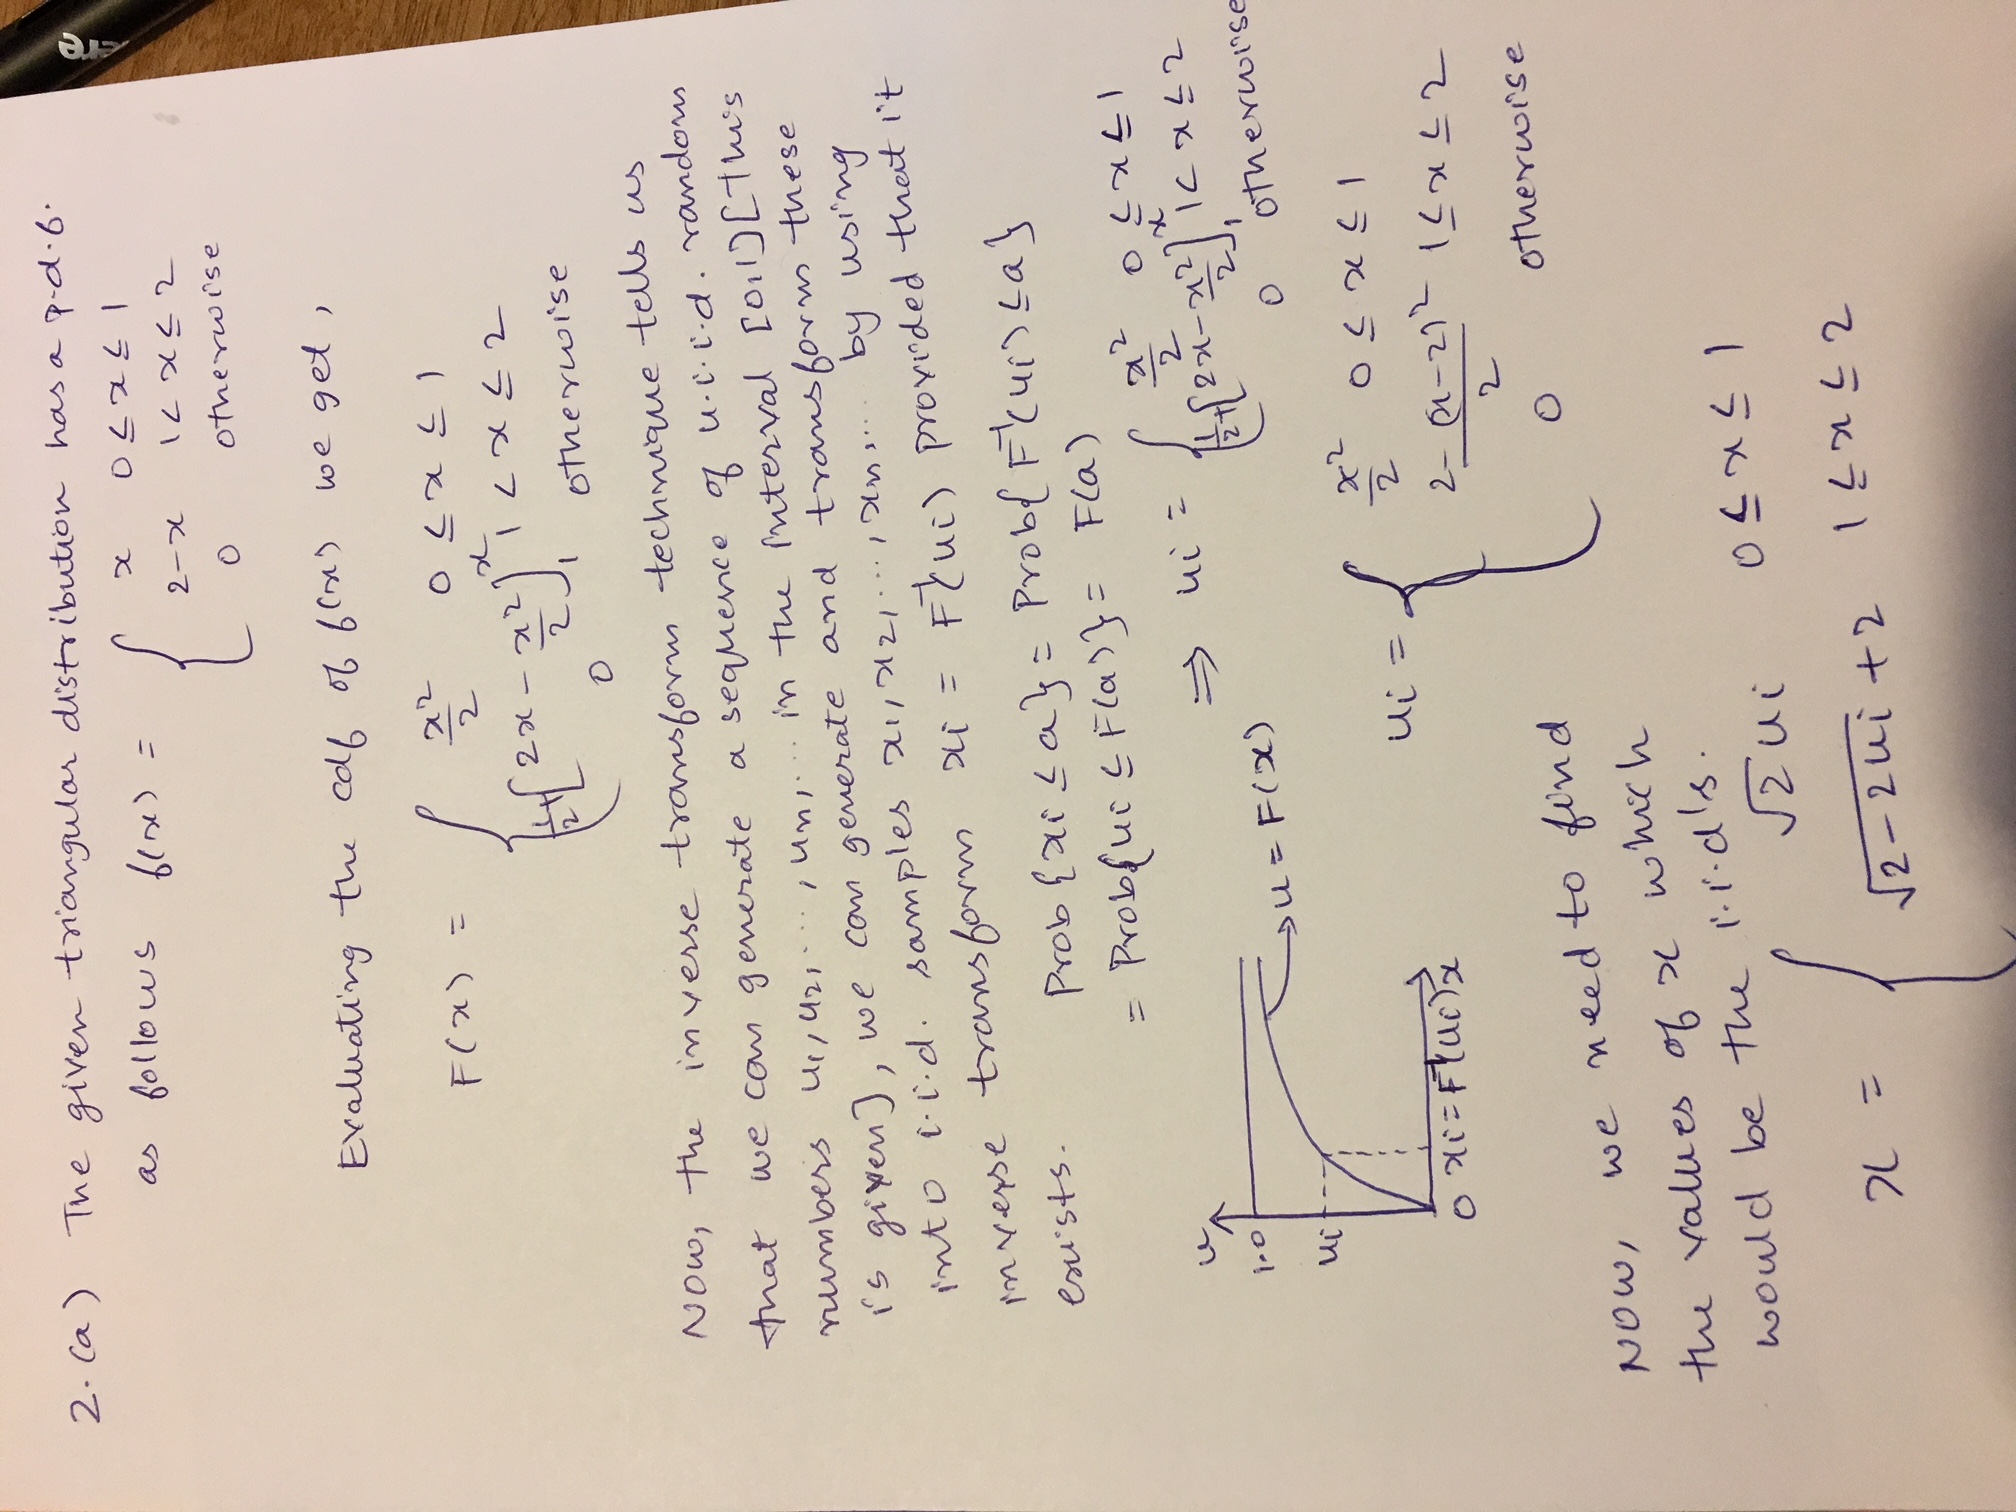 2. (a) The given triangular distribution has a p.d.f.
as follows f(x) = { x 0 ≤ x ≤ 1
2-x 1 < x ≤ 2
0 otherwise
Evaluating the cdf of f(x) we get,
F(x) = { x²/2 0 ≤ x ≤ 1
1/2 + [2x - x²/2]₁ˣ 1 < x ≤ 2
0 otherwise
Now, the inverse transform technique tells us
that we can generate a sequence of u.i.i.d. random
numbers u₁, u₂, ..., uₙ, ... in the interval [0,1] [This
is given], we can generate and transform these
into i.i.d. samples x₁, x₂, ..., xₙ, ... by using
inverse transform xi = F⁻¹(ui) provided that it
exists. Prob{xi ≤ a} = Prob{F⁻¹(ui) ≤ a}
= Prob{ui ≤ F(a)} = F(a)
⇒ ui = { x²/2 0 ≤ x ≤ 1
1/2 + [2x - x²/2]₁ˣ 1 < x ≤ 2
0 otherwise
u
1.0
u = F(x)
ui
0 xi = F⁻¹(ui) x
ui = { x²/2 0 ≤ x ≤ 1
2 - (x-2)²/2 1 ≤ x ≤ 2
0 otherwise
Now, we need to find
the values of x which
would be the i.i.d's.
x = { √2ui 0 ≤ x ≤ 1
√2-2ui + 2 1 ≤ x ≤ 2
ere